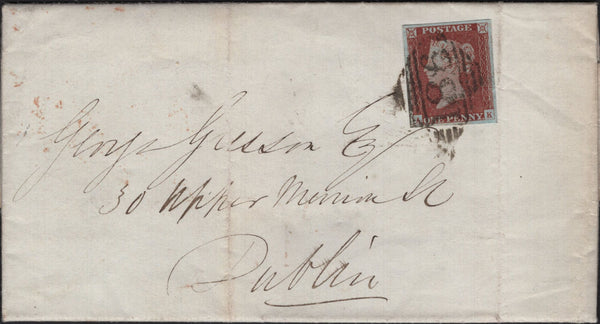 POSTAGE
ONE PENNY
K
George Gresson Esq
30 Upper Merrion St
Dublin